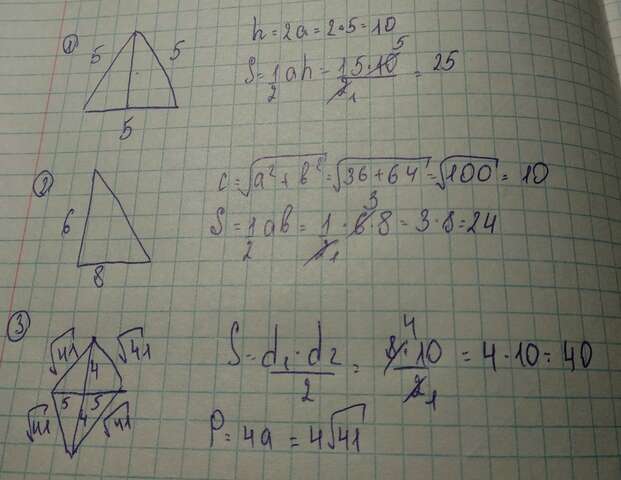 1
5 5
5
h = 2a = 2·5 = 10
S = 1/2 ah = 1·5·10/2 = 25
5
1
2
6
8
c = √(a² + b²) = √(36+64) = √100 = 10
S = 1/2 ab = 1/2 · 6 · 8 = 3·8 = 24
3
1
3
√41 √41
4
5 5
√41 4 √41
S = d₁·d₂/2 = 8·10/2 = 4·10 = 40
4
1
P = 4a = 4√41